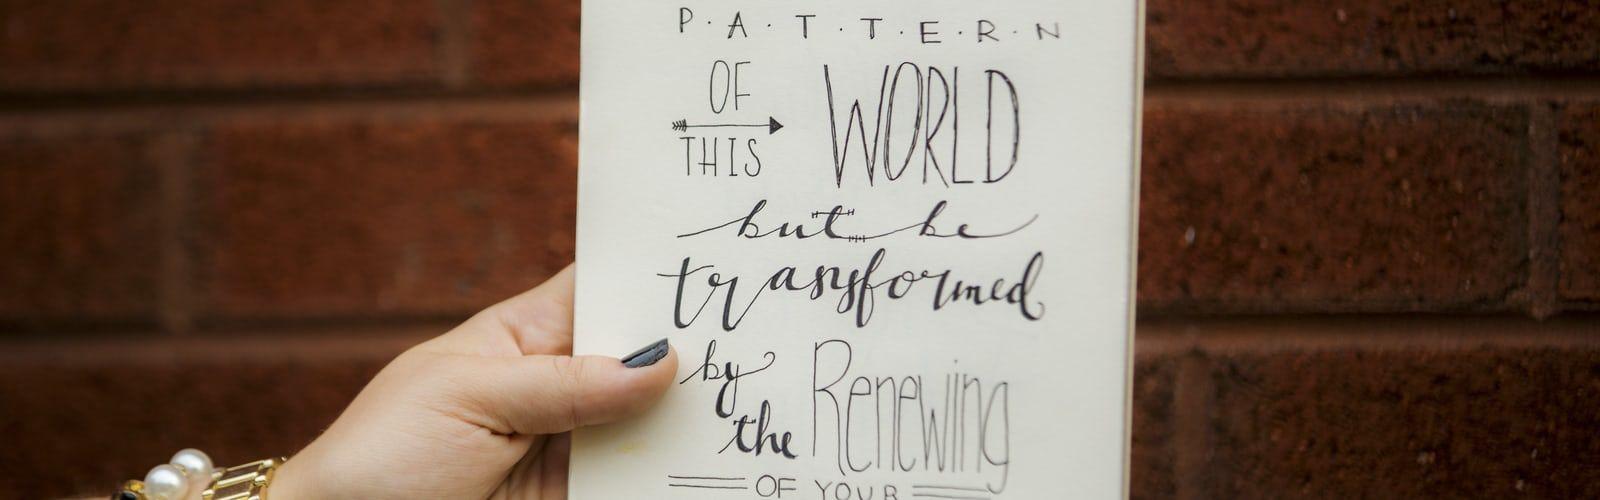 P·A·T·T·E·R·N
OF
THIS WORLD
but be
transformed
by
the Renewing
OF YOUR